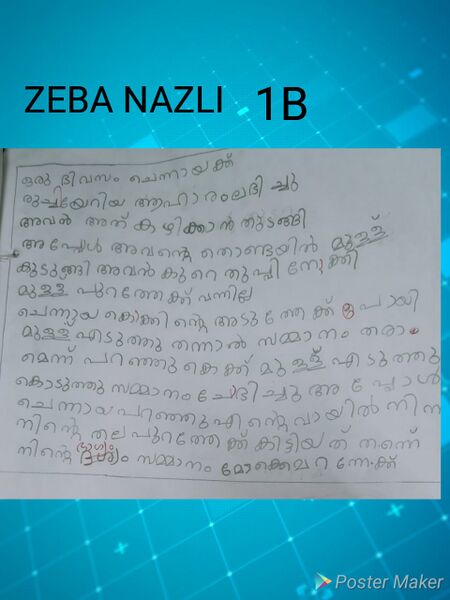 ZEBA NAZLI 1B
ഒരു ദിവസം ചെന്നായക്ക്
രുചിയേറിയ ആഹാരംലഭിച്ചു
അവൻ അത് കഴിക്കാൻ തുടങ്ങി
അപ്പോൾ അവന്റെ തൊണ്ടയിൽ മുള്ള്
കുടുങ്ങി അവൻ കുറെ തുപ്പി നോക്കി
മുള്ള് പുറത്തേക്ക് വന്നില്ല
ചെന്നായ കൊക്കിന്റെ അടുത്തേക്ക് പോയി
മുള്ള് എടുത്തു തന്നാൽ സമ്മാനം തരാ
മെന്ന് പറഞ്ഞു കൊക്ക് മുള്ള് എടുത്തു
കൊടുത്തു സമ്മാനം ചോദിച്ചു അപ്പോൾ
ചെന്നായ പറഞ്ഞു എന്റെ വായിൽ നിന്ന
നിന്റെ തല പുറത്തേക്ക് കിട്ടിയത് തന്നെ
നിന്റെ ഭാഗ്യം സമ്മാനം
Poster Maker